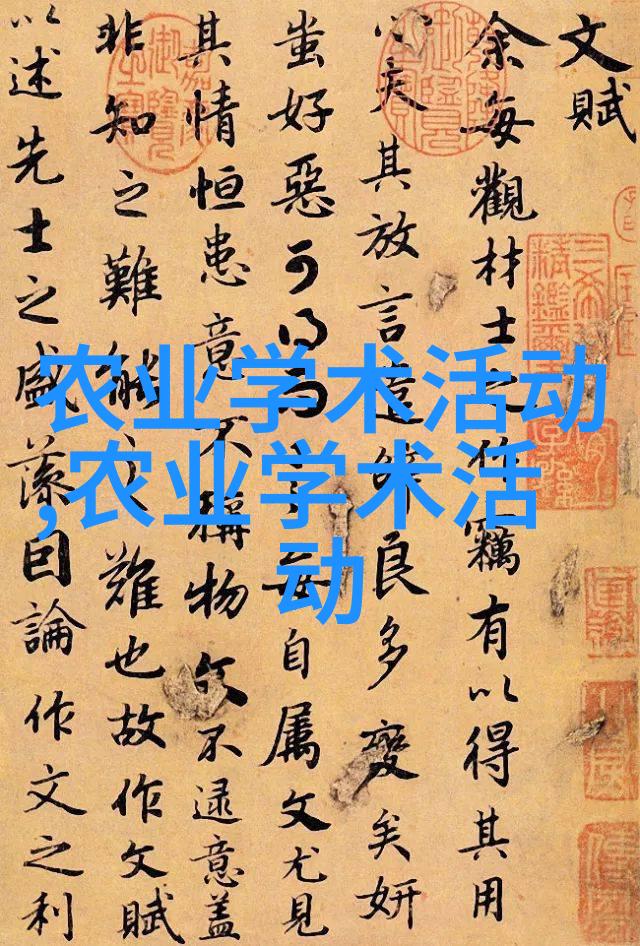 文賦
余每觀材士之作竊有以得其用
心夫其放言遣辭良多變矣妍
蚩好惡可得而言每自属文尤見
其情恒患意不稱物文不逮意蓋
非知之難能之難也故作文賦
以述先士之盛藻因論作文之利
农业学术活动
,农业学术活
动